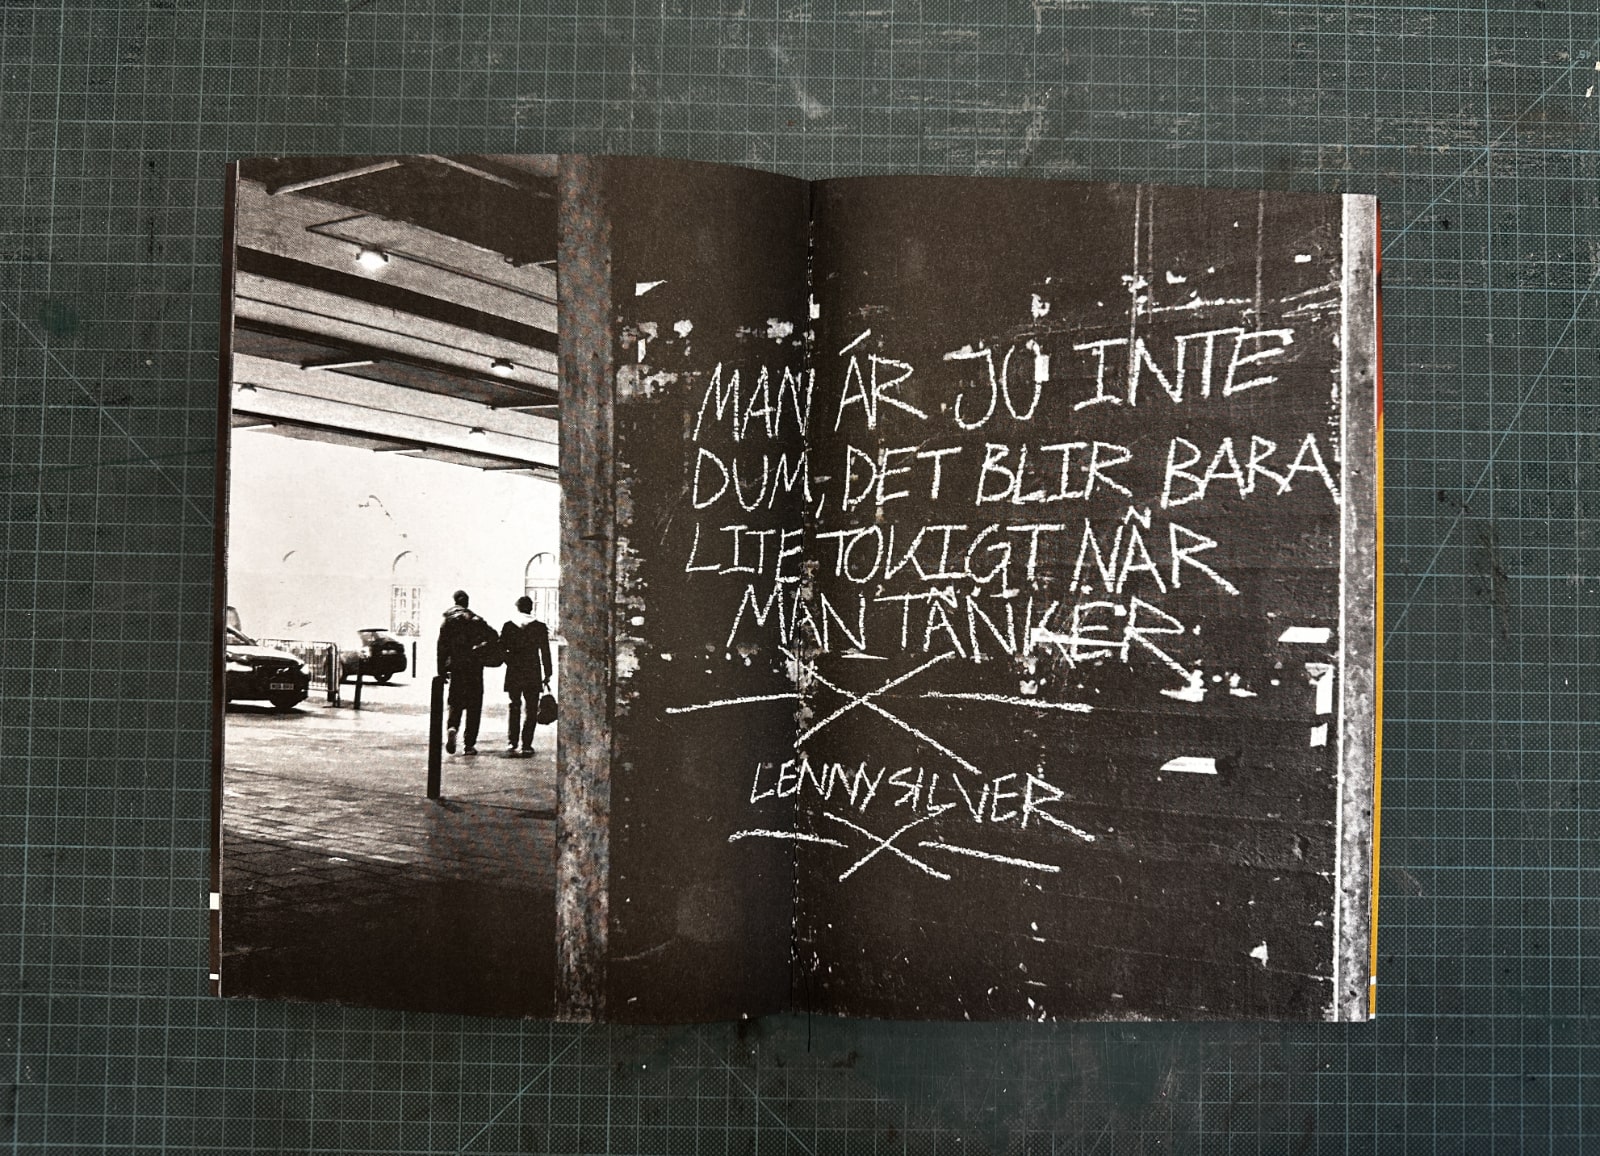 MAN ÄR JU INTE
DUM, DET BLIR BARA
LITE TOKIGT NÄR
MAN TÄNKER
LENNY SILVER